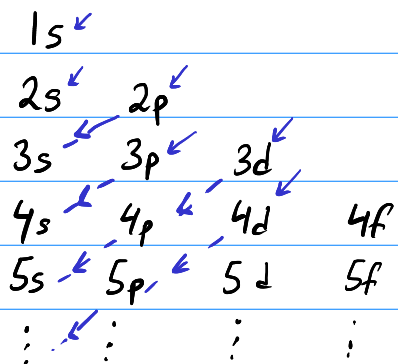 1s
2s 2p
3s 3p 3d
4s 4p 4d 4f
5s 5p 5d 5f
⋮ ⋮ ⋮ ⋮